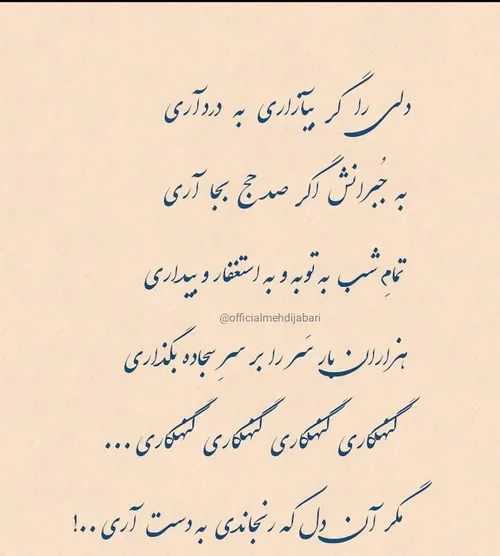 دلی را گر بیآزاری به درد آری
به جُبرانش اگر صد حج بجا آری
تمامِ شب به توبه و به استغفار و بیداری
@officialmehdijabari
هزاران بار سَر را بر سرِ سجاده بگذاری
گنهکاری گنهکاری گنهکاری گنهکاری ...
مگر آن دل که رنجاندی به دست آری ..!